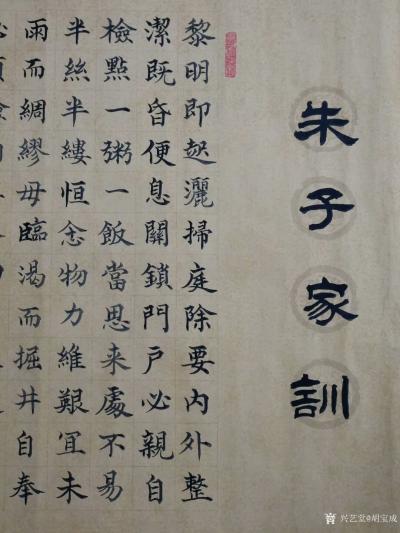 朱子家訓
黎明即起灑掃庭除要内外整
潔既昏便息關鎖門户必親自
檢點一粥一飯當思来處不易
半絲半縷恒念物力維艱宜未
雨而綢繆毋臨渴而掘井自奉
兴艺堂@胡宝成